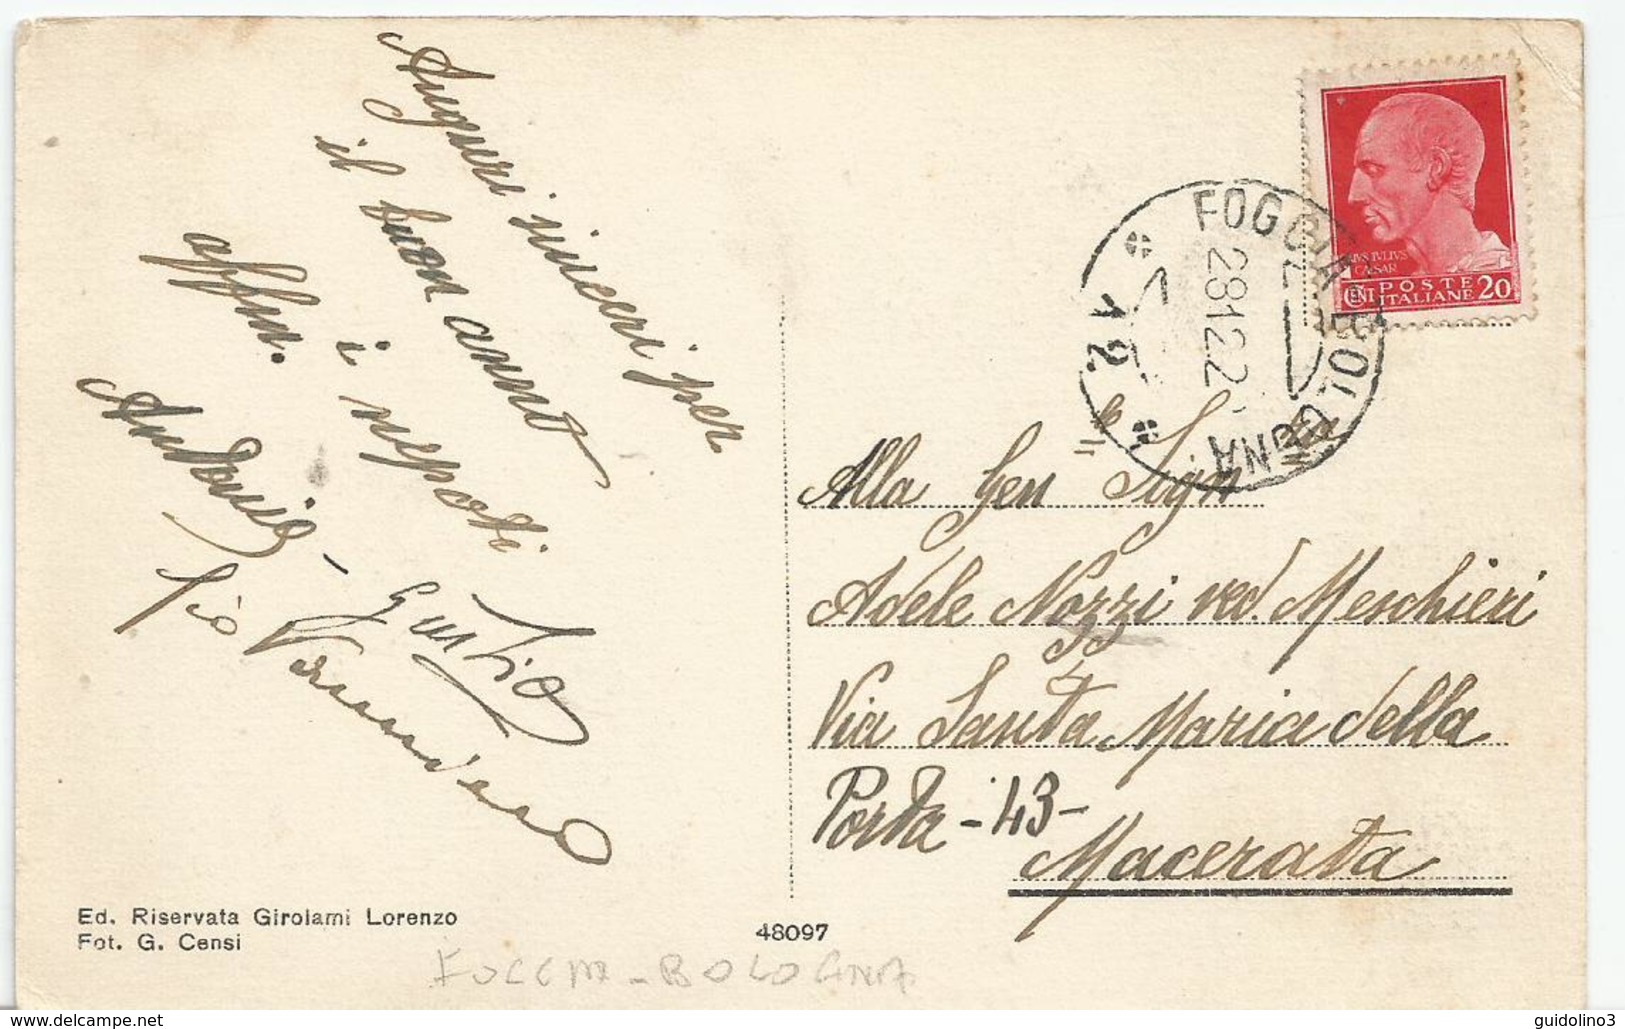 Auguri sinceri per
il buon anno
i nepoti
affmi.
Antonio - Giustino
Zio
FOGGIA BOLOGNA
28 12 2
12
IVS IVLIVS
CAESAR
CENT POSTE
ITALIANE 20
Alla Gen Sign
Adele Nozzi ved. Meschieri
Via Santa Maria della
Porta - 43 -
Macerata
Ed. Riservata Girolami Lorenzo
Fot. G. Censi
48097
FOGGIA - BOLOGNA
www.delcampe.net
guidolino3